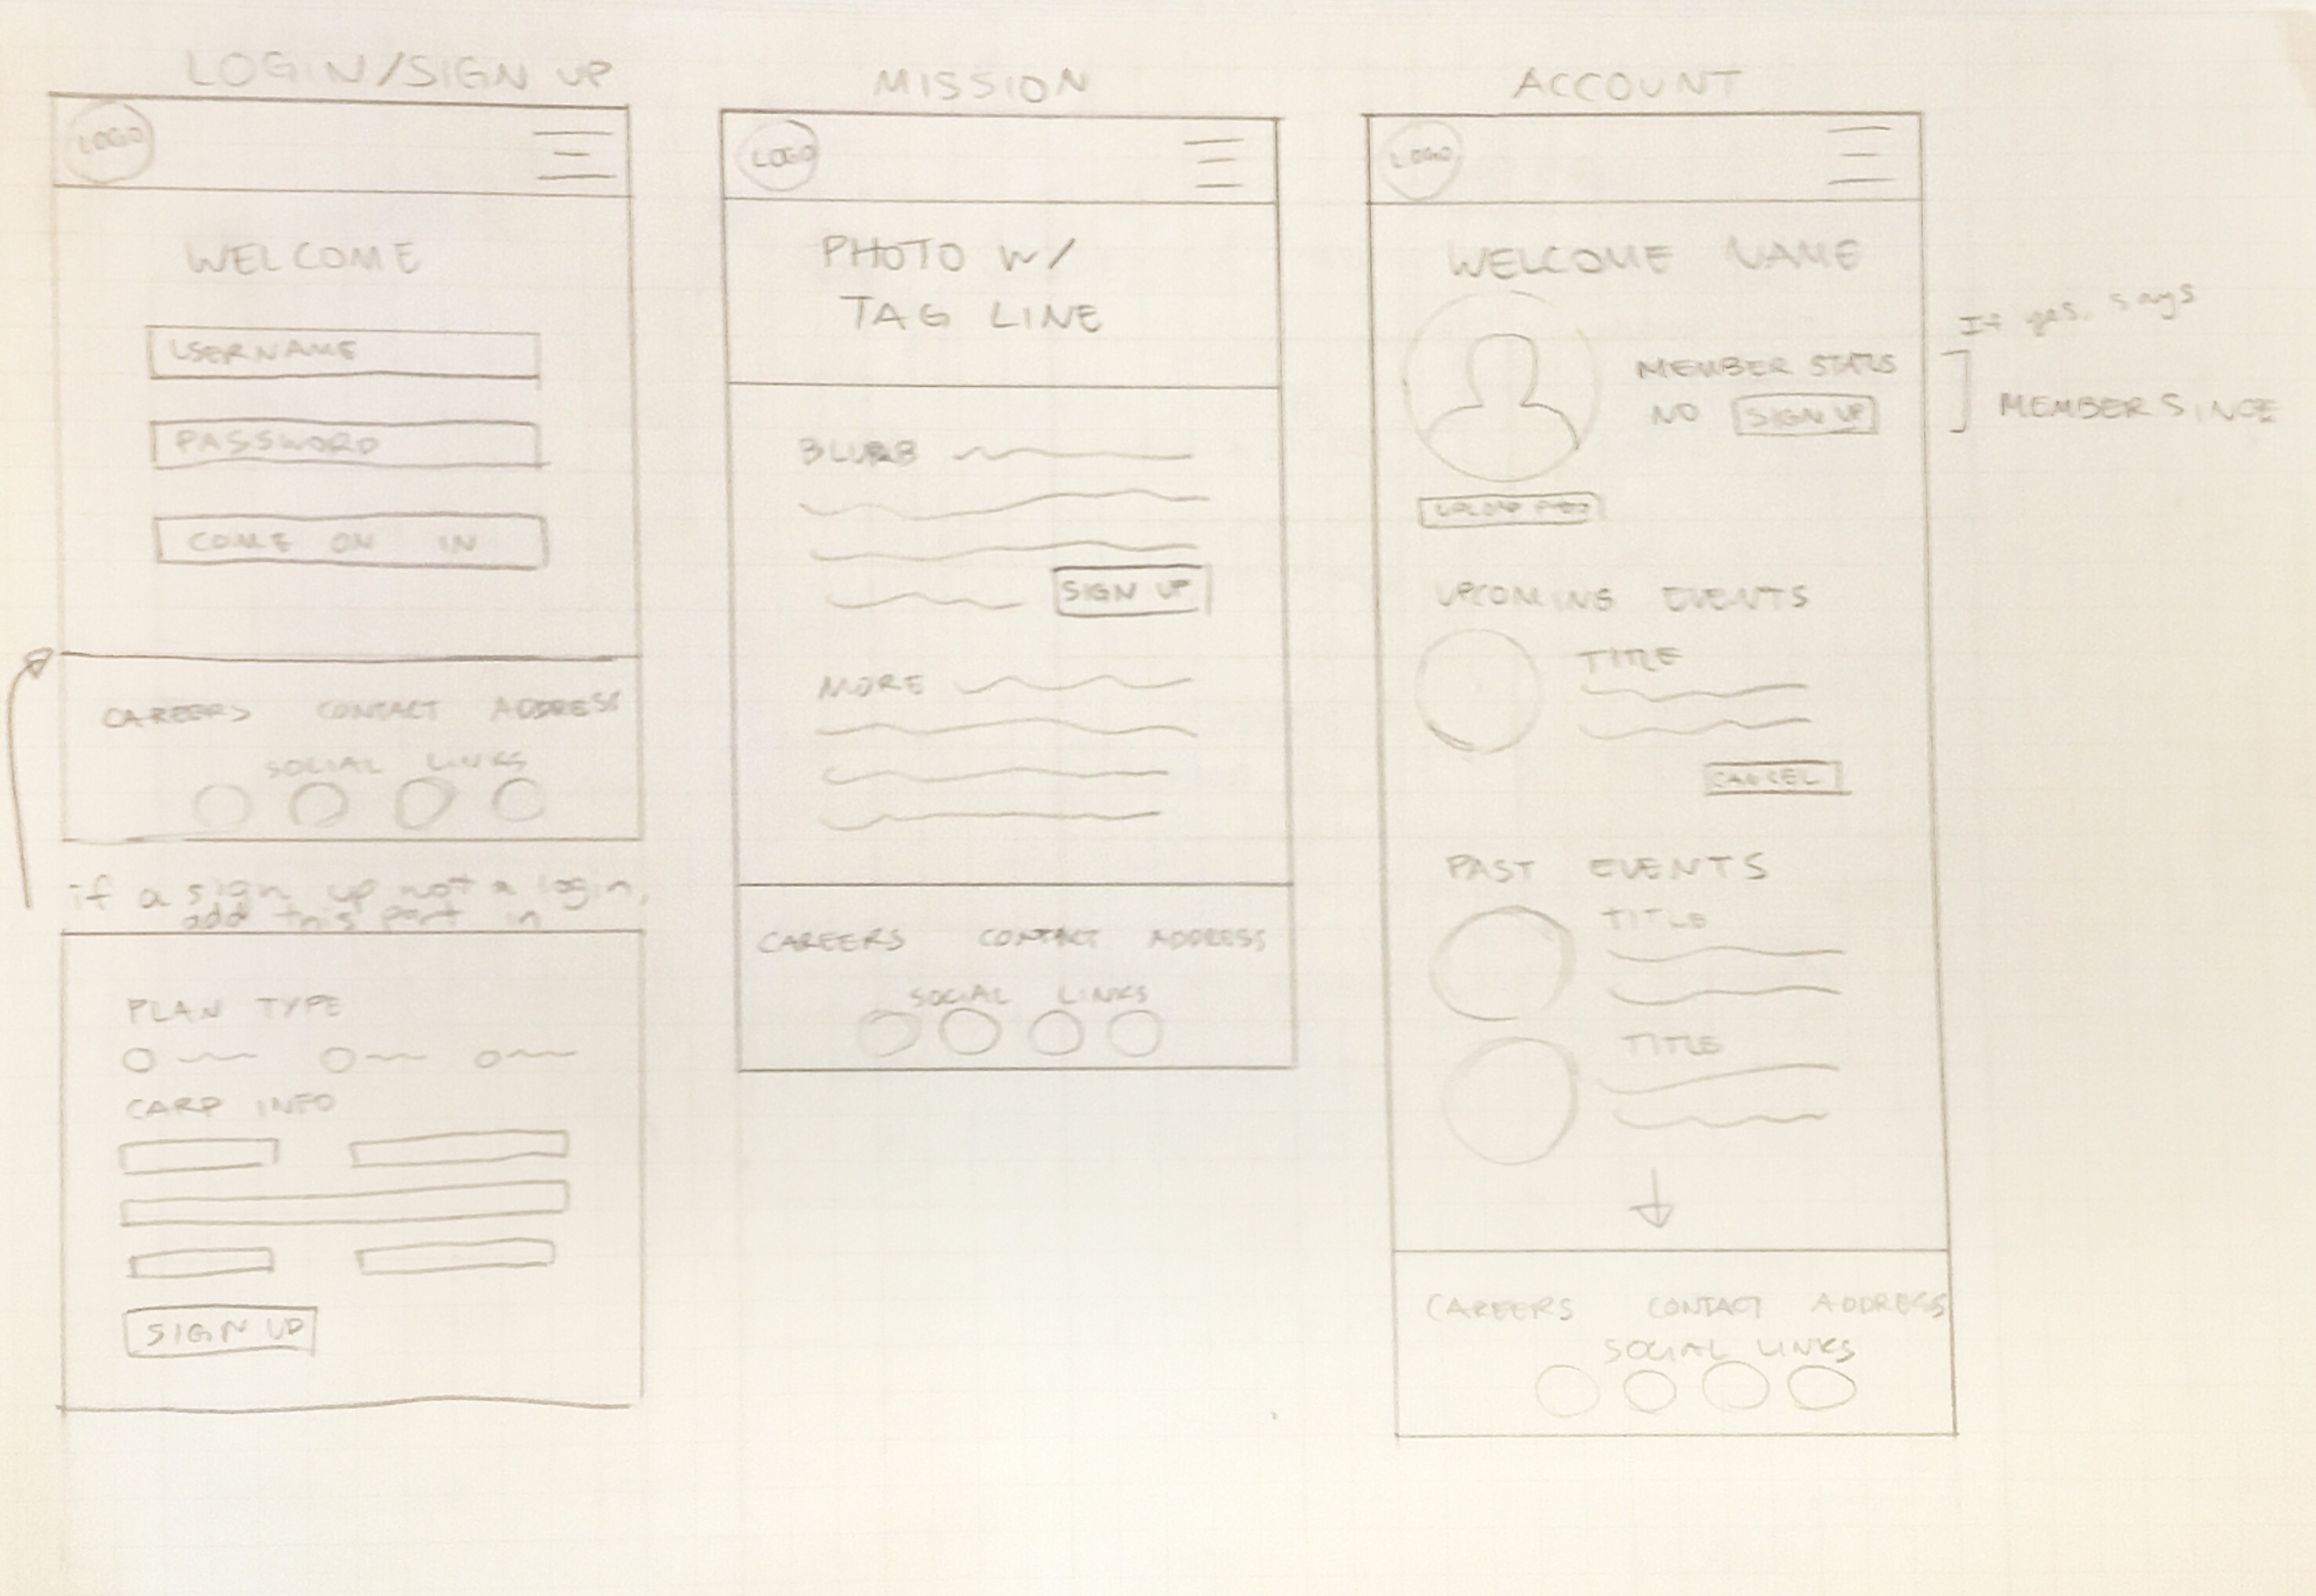 LOGIN/SIGN UP
LOGO
WELCOME
USERNAME
PASSWORD
COME ON IN
CAREERS CONTACT ADDRESS
SOCIAL LINKS
if a sign up not a login,
add this part in
PLAN TYPE
CARD INFO
SIGN UP
MISSION
LOGO
PHOTO W/
TAG LINE
BLURB
SIGN UP
MORE
CAREERS CONTACT ADDRESS
SOCIAL LINKS
ACCOUNT
LOGO
WELCOME NAME
MEMBER STATUS
NO SIGN UP
UPLOAD PHOTO
If yes, says
MEMBER SINCE
UPCOMING EVENTS
TITLE
CANCEL
PAST EVENTS
TITLE
TITLE
CAREERS CONTACT ADDRESS
SOCIAL LINKS